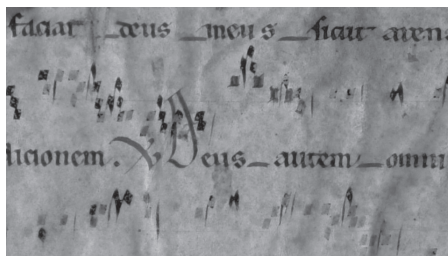 faciat deus meus sicut aren
dicionem. V Deus autem omni